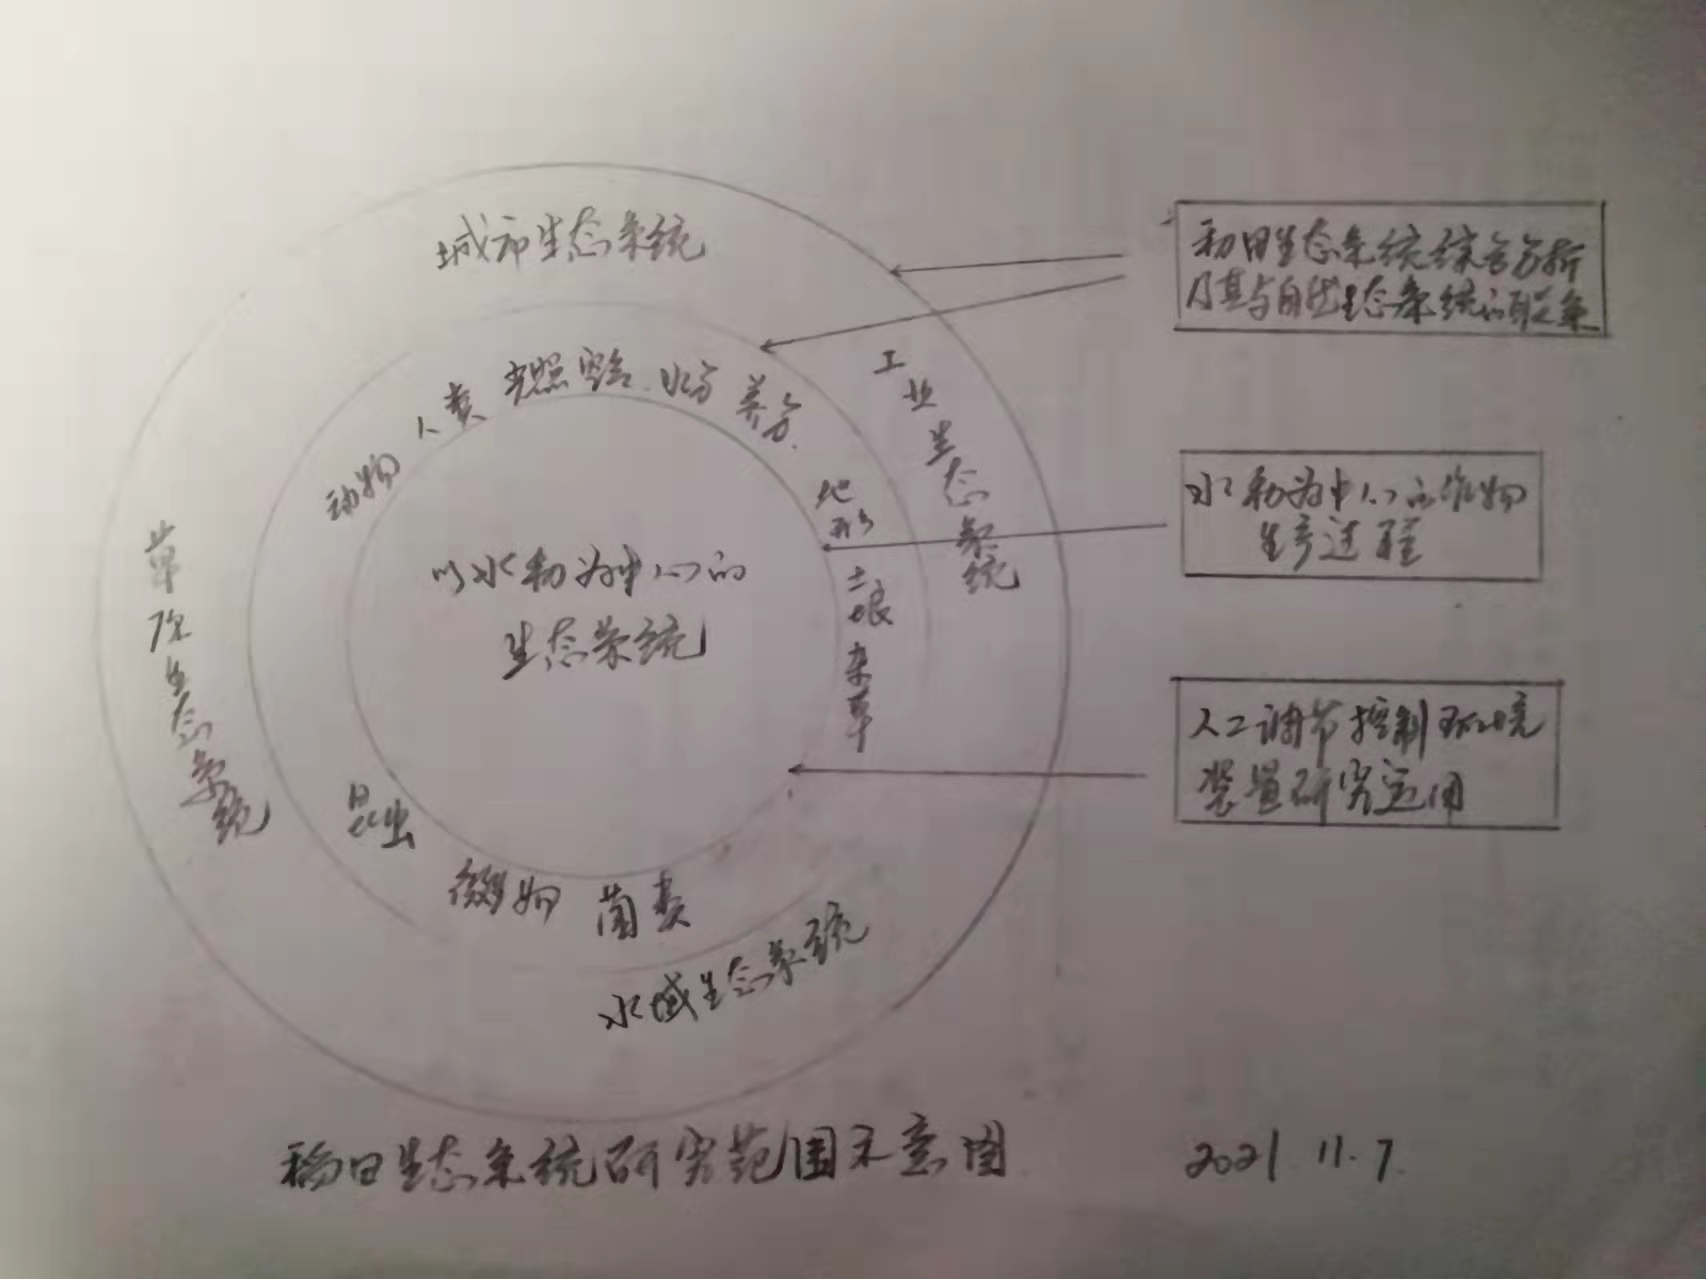 城市生态系统
工业生态系统
水域生态系统
草原生态系统
人类 光照 空气 水分 养分
地形
土壤
杂草
菌类
微生物
昆虫
动物
以水稻为中心的
生态系统
稻田生态系统综合分析
及其与自然生态系统的联系
水稻为中心的作物
生产过程
人工调节控制环境
装置研究运用
稻田生态系统研究范围示意图
2021 11.7